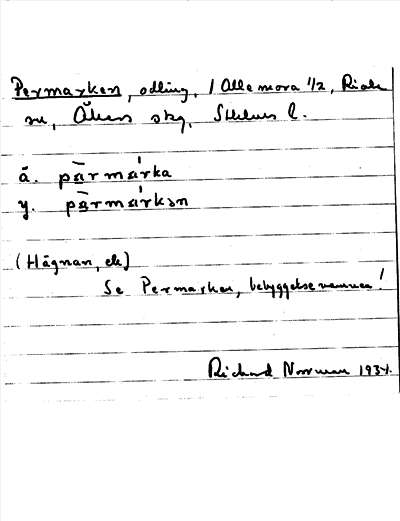 Permarken, odling, / Alle mora 1/2, Riala
sn, Åkers skg, Sthlms l.
ä. pärmárka
y. pärmárkən
(Hägnan, ek)
Se Permarken, bebyggelsenamnen!
Richard Norrman 1934.